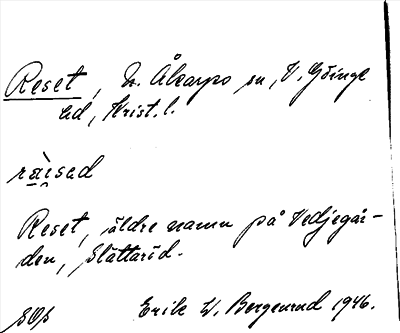 Reset, N. Åkarps sn, V. Göinge
hd, Krist. l.
ràisad
Reset, äldre namn på Vedjegår-
den, Slättaröd.
Erik W. Bergenrud 1946.